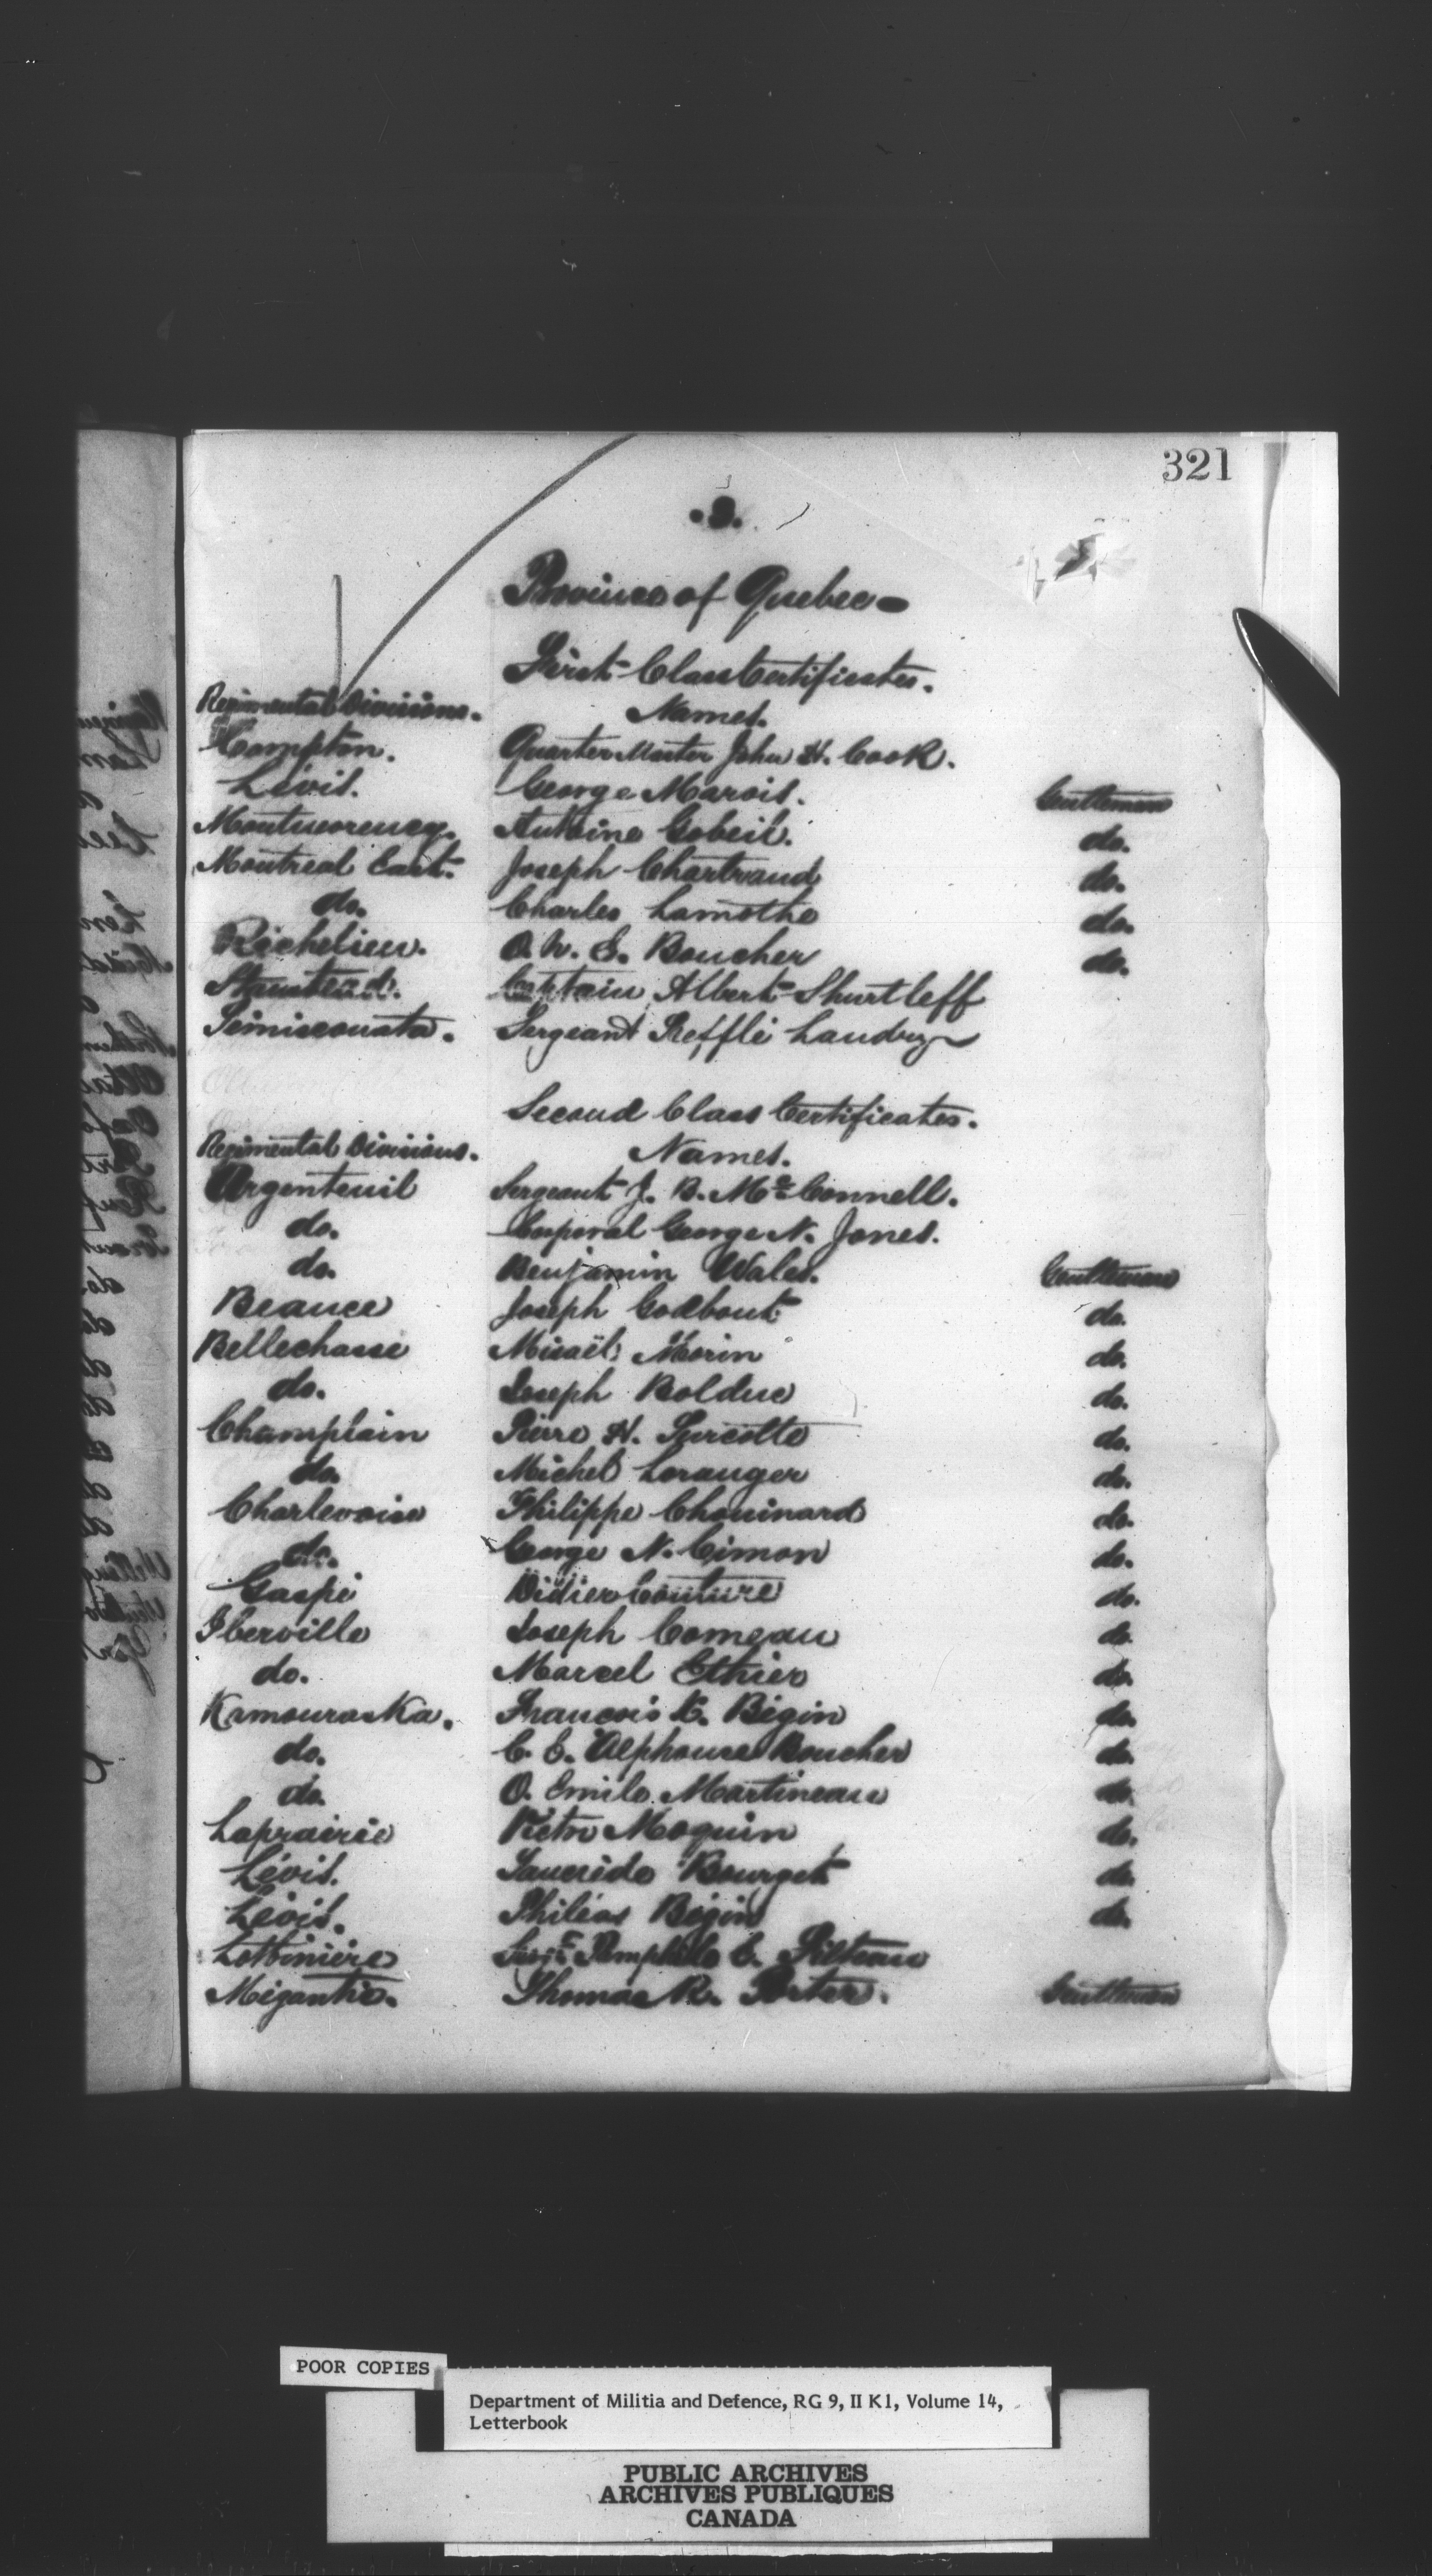 321
.3.
Province of Quebec
First Class Certificates.
Regimental Divisions. Names.
Compton. Quarter Master John H. Cook.
Lévis. George Marois. Gentleman
Montmorency. Antoine Gobeil. do.
Montreal East. Joseph Chartrand do.
do. Charles Lamothe do.
Richelieu. Boucher do.
Stanstead. Captain Albert Shurtleff
Témiscouata. Sergeant Landry
Second Class Certificates.
Regimental Divisions. Names.
Argenteuil Sergeant J. B. McConnell.
do. Corporal George N. Jones.
do. Benjamin Wales. Gentleman
Beauce Joseph Godbout do.
Bellechasse Misaël Morin do.
do. Joseph Bolduc do.
Champlain Pierre H. Turcotte do.
do. Michel Loranger do.
Charlevoix Philippe Chouinard do.
do. George N. Cimon do.
Gaspé Didier Couture do.
Iberville Joseph Comeau do.
do. Marcel Ethier do.
Kamouraska. Francois X. Bégin do.
do. C. E. Alphonse Boucher do.
do. O. Emile Martineau do.
Laprairie Victor Moquin do.
Lévis. Bourget do.
Lévis. Philéas Bégin do.
Lotbinière Pamphile
Mégantic. Thomas R. Porter. Gentleman
POOR COPIES
Department of Militia and Defence, RG 9, II K1, Volume 14,
Letterbook
PUBLIC ARCHIVES
ARCHIVES PUBLIQUES
CANADA